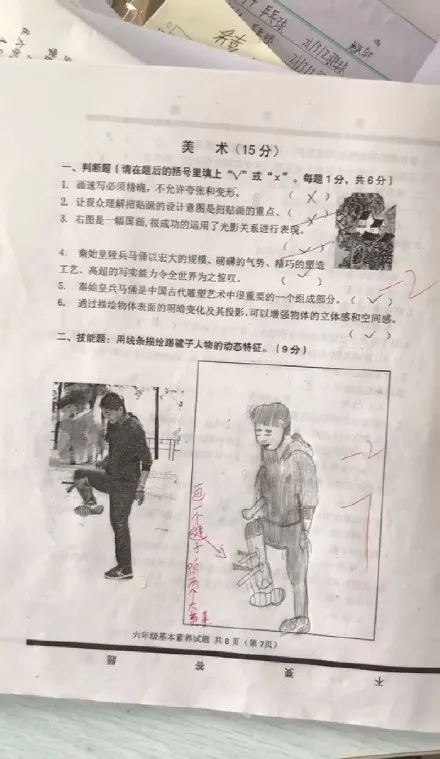 美 术（15分）
一、判断题（请在题后的括号里填上“√”或“×”。每题1分，共6分）
1. 画速写必须精确，不允许夸张和变形。（ × ）
2. 让观众理解招贴画的设计意图是招贴画的重点。（ × ）
3. 右图是一幅国画，很成功的运用了光影关系进行表现。
（ ）
4. 秦始皇陵兵马俑以宏大的规模、磅礴的气势、精巧的塑造
工艺、高超的写实能力令全世界为之惊叹。（ √ ）
5. 秦始皇兵马俑是中国古代雕塑艺术中很重要的一个组成部分。（ √ ）
6. 通过描绘物体表面的明暗变化及其投影，可以增强物体的立体感和空间感。
（ √ ）
-2
二、技能题：用线条描绘踢毽子人物的动态特征。（9分）
-2
7
画一个毽子
六年级基本素养试题 共8页（第7页）
题 答 要 不